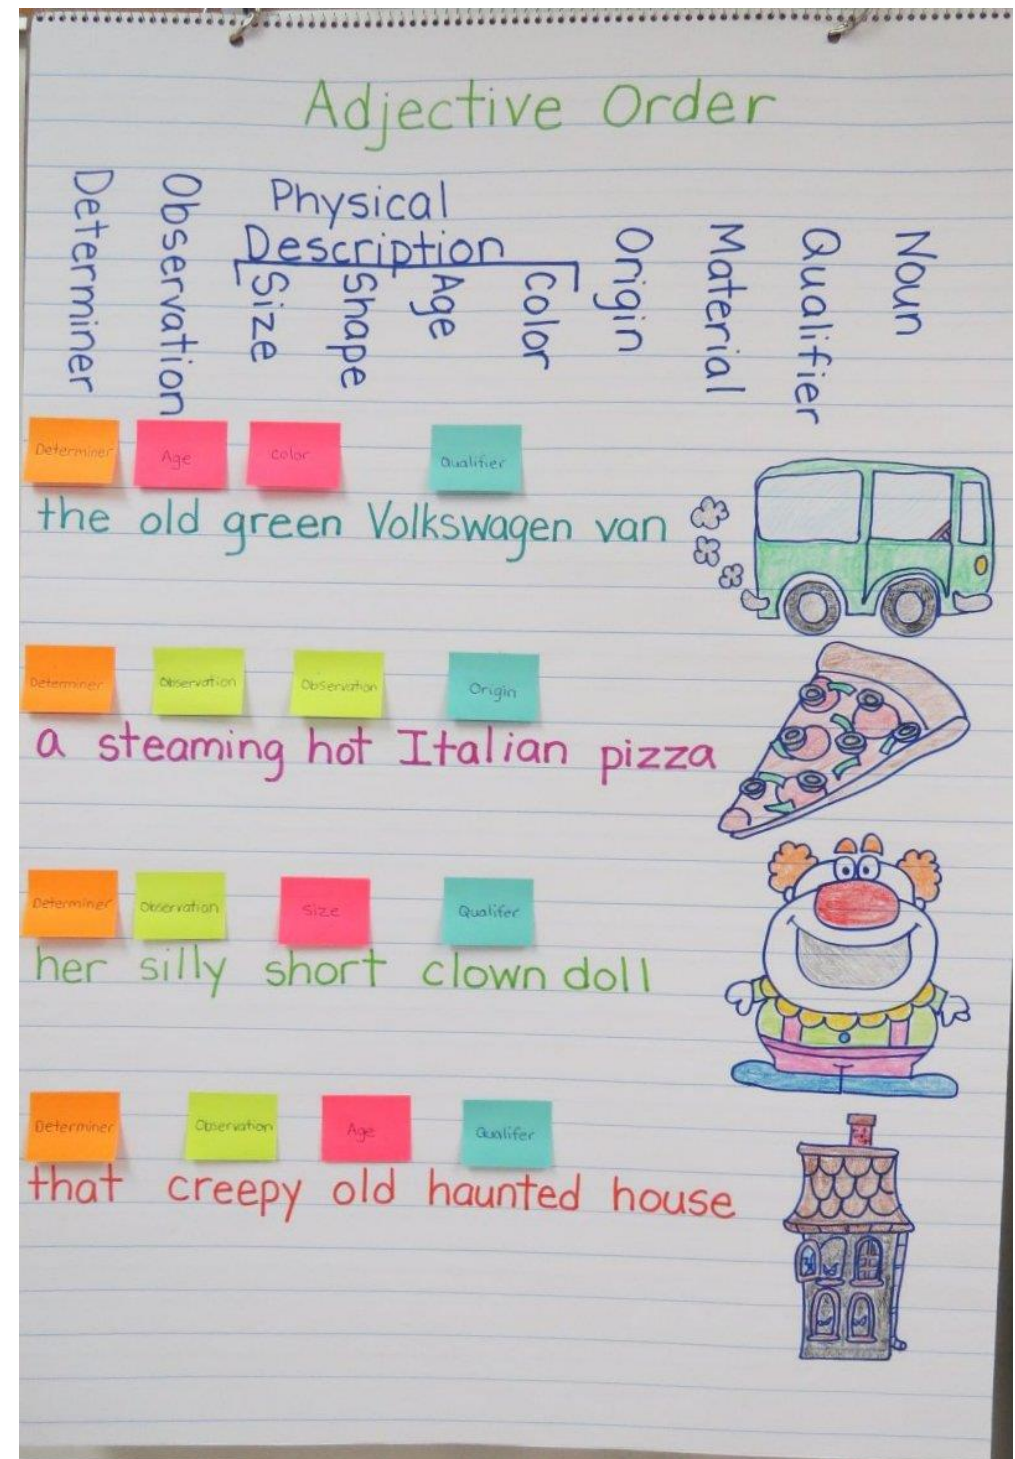 Adjective Order
Determiner
Observation
Physical
Description
Size
Shape
Age
Color
Origin
Material
Qualifier
Noun
Determiner Age Color Qualifier
the old green Volkswagen van
Determiner Observation Observation Origin
a steaming hot Italian pizza
Determiner Observation Size Qualifer
her silly short clown doll
Determiner Observation Age Qualifer
that creepy old haunted house